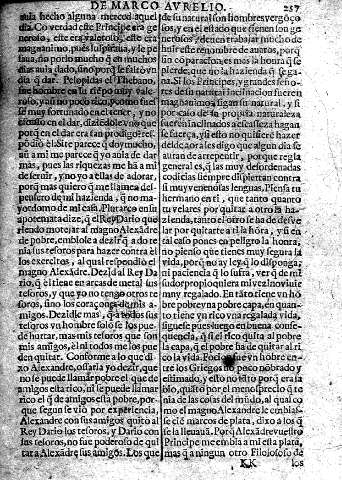 DE MARCO AVRELIO.
257
auía hecho alguna merced aquel
día. Co verdad este Principe era ge
neroso, y este era valeroso, este era
magnanimo, pues suspiraua, y se pe
naua, no porlo mucho q̃ en muchos
dias auia dado, sino porq̃ se le saltò vn
dia q̃ dar. Pelopidas el Thebano,
fue hombre en su tiẽpo muy vale
roso, y aũ no poco rico, y como fues
se muy fortunado en el tener, y no
escaso en el dar, diziẽdole vno que
porq̃ en el dar era tan prodigo: res-
põdio el. Si te parece q̃ doy mucho,
aũ a mi me parece q̃ yo auia de dar
mas, pues las riquezas me hã a mi
de seruir, y no yo a ellas de adorar,
porq̃ mas quiero q̃ me llamẽ a des-
pensero de mi hazienda, q̃ no ma-
yordomo de mi casa. Plutarco en su
apotemata dize, q̃ el Rey Dario quẽ
riendo motejar al magno Alexãdre
de pobre, embiole a dezir q̃ a do te
nia sus tesoros para hazer contra èl
los exercitos, al qual respondio el
magno Alexãdre. Dezid al Rey Da
rio, q̃ èl tiene en arcas de metal sus
tesoros, y que yo no tengo otros te
soros, sino los coraçones de mis a-
migos. Dezidle mas, q̃ a todos sus
tesoros vn hombre solo se los pue
de hurtar, mas mis tesoros que son
mis amigos, èl ni todos me los pue
den quitar. Conforme a lo que di-
xo Alexandre, osaria yo dezir, que
no se puede llamar pobre el que de
amigos està rico, ni se puede llamar
rico el q̃ de amigos està pobre, por-
que segun se viò por experiencia,
Alexandre con sus amigos quitò al
Rey Dario sus tesoros, y Dario con
sus tesoros, no fue poderoso de qui
tar a Alexãdre sus amigos. Los que
de su natural son hombres vergõço
sos, y en el estado que tienen son ge
nerosos deben trabajar mucho de
huir este renombre de auaros, porq̃
sin cõparacion es mas la honra q̃ se
pierde, que no la hazienda q̃ se ga-
na. Si los Principes, y grandes seño-
res de su natural inclinacion fueren
magnanimos, sigan su natural, y si
por caso de su propia naturaleza
fueren inclinados a escasseza hagan
se fuerça, y si esto no quisieren hazer
desde aora les digo que algun dia se
auran de arrepentir, porque regla
general es, q̃ las muy desordenadas
codicias siempre dispiertan contra
si muy venenosas lenguas. Piensa tu
hombre en ti, que tanto quanto
tu velares por quitar a otro la ha-
zienda, tanto el otro se ha de desve
lar por quitarte a ti la hõra, y si en
tal caso pones en peligro la honra,
no pienso que tienes muy segura la
vida, porq̃ no ay ley q̃ lo disponga,
ni paciencia q̃ lo sufra, ver q̃ de mi
sudor propio quiera mi vezino viuir
muy regalado. En tãto tiene vn hõ
bre pobre y na pobre capa, en quan-
to tiene vn rico vna regalada vida,
siguese pues luego en buena conse-
quencia, q̃ si el rico quita al pobre
la capa, q̃ el pobre ha de quitar al ri
co la vida. Focio fue vn hõbre en-
tre los Griegos no poco nõbrado y
estimado, y esto no tãto porq̃ era sa
bio, quãto por el menosprecio q̃ te
nia de las cosas del mũdo, al qual co
mo el magno Alexandre le embias-
se cié marcos de plata, dixo a los q̃
se la lleuauã. Porq̃ Alexãdre vuestro
Principe me embia a mi esta plata,
mas q̃ a ningun otro Filosofo de
Kk
los